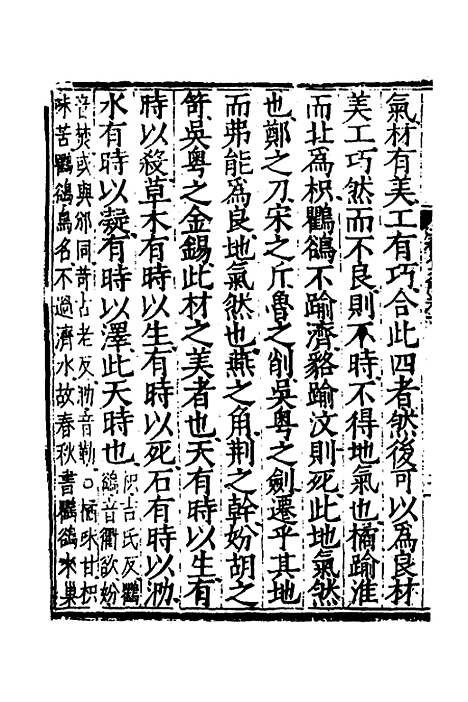 氣材有美工有巧合此四者然後可以為良材
美工巧然而不良則不時不得地氣也橘踰淮
而北為枳鸜鵒不踰濟貉踰汶則死此地氣然
也鄭之刀宋之斤魯之削吳粵之劍遷乎其地
而弗能為良地氣然也燕之角荆之幹妢胡之
笴吳粵之金錫此材之美者也天有時以生有
時以殺草木有時以生有時以死石有時以泐
水有時以凝有時以澤此天時也
枳吉氏反鸜
鵒音衢欲妢
音焚或與邠同笴古老反泐音勒○橘味甘枳
味苦鸜鵒鳥名不過濟水故春秋書鸜鵒來巢